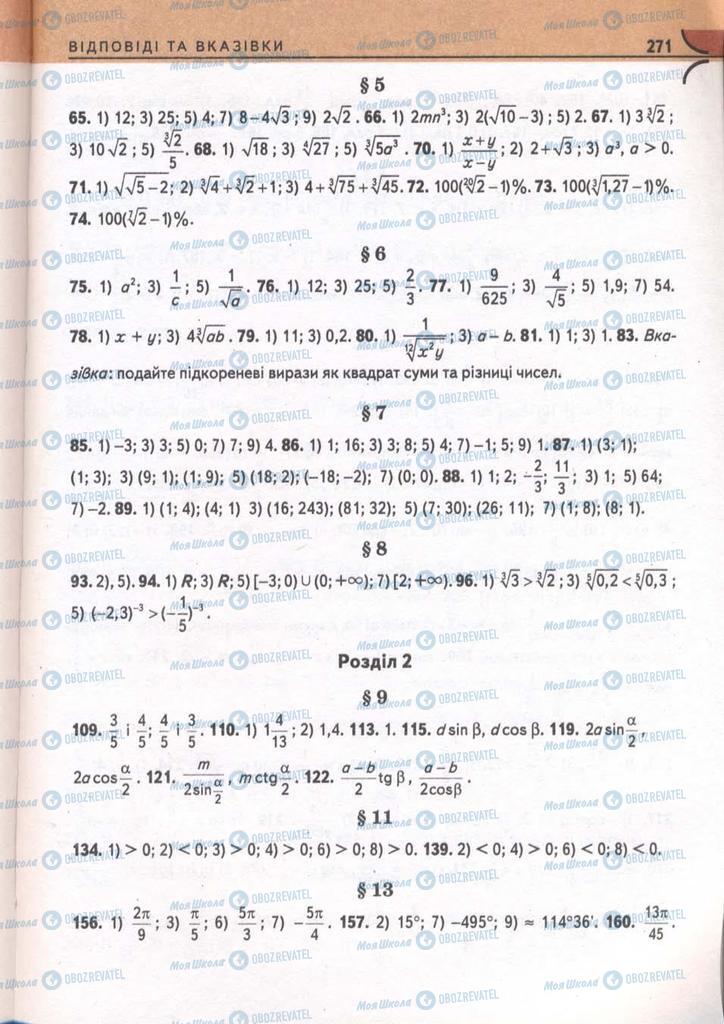 ВІДПОВІДІ ТА ВКАЗІВКИ 271
§ 5
65. 1) 12; 3) 25; 5) 4; 7) 8–4√3; 9) 2√2. 66. 1) 2mn³; 3) 2(√10–3); 5) 2. 67. 1) 3∛2;
3) 10√2; 5) ∛2/5. 68. 1) √18; 3) ∜27; 5) ∛5a³. 70. 1) (x+y)/(x–y); 2) 2+√3; 3) a³, a > 0.
71. 1) √(√5–2); 2) ∛4+∛2+1; 3) 4+∛75+∛45. 72. 100(²⁰√2–1)%. 73. 100(∛1,27–1)%.
74. 100(⁷√2–1)%.
§ 6
75. 1) a²; 3) 1/c; 5) 1/√a. 76. 1) 12; 3) 25; 5) 2/3. 77. 1) 9/625; 3) 4/√5; 5) 1,9; 7) 54.
78. 1) x + y; 3) 4∛ab. 79. 1) 11; 3) 0,2. 80. 1) 1/¹²√x²y; 3) a – b. 81. 1) 1; 3) 1. 83. Вка-
зівка: подайте підкореневі вирази як квадрат суми та різниці чисел.
§ 7
85. 1) –3; 3) 3; 5) 0; 7) 7; 9) 4. 86. 1) 1; 16; 3) 3; 8; 5) 4; 7) –1; 5; 9) 1. 87. 1) (3; 1);
(1; 3); 3) (9; 1); (1; 9); 5) (18; 2); (–18; –2); 7) (0; 0). 88. 1) 1; 2; –2/3; 11/3; 3) 1; 5) 64;
7) –2. 89. 1) (1; 4); (4; 1) 3) (16; 243); (81; 32); 5) (7; 30); (26; 11); 7) (1; 8); (8; 1).
§ 8
93. 2), 5). 94. 1) R; 3) R; 5) [–3; 0) ∪ (0; +∞); 7) [2; +∞). 96. 1) ∛3 > ∛2; 3) ⁵√0,2 < ⁵√0,3;
5) (–2,3)⁻³ > (–1/5)⁻³.
Розділ 2
§ 9
109. 3/5 і 4/5; 4/5 і 3/5. 110. 1) 1 4/13; 2) 1,4. 113. 1. 115. d sin β, d cos β. 119. 2a sin α/2,
2a cos α/2. 121. m/(2sin α/2), m ctg α/2. 122. (a–b)/2 tg β, (a–b)/(2cosβ).
§ 11
134. 1) > 0; 2) < 0; 3) > 0; 4) > 0; 6) > 0; 8) > 0. 139. 2) < 0; 4) > 0; 6) < 0; 8) < 0.
§ 13
156. 1) 2π/9; 3) π/5; 6) 5π/3; 7) –5π/4. 157. 2) 15°; 7) –495°; 9) ≈ 114°36′. 160. 13π/45.